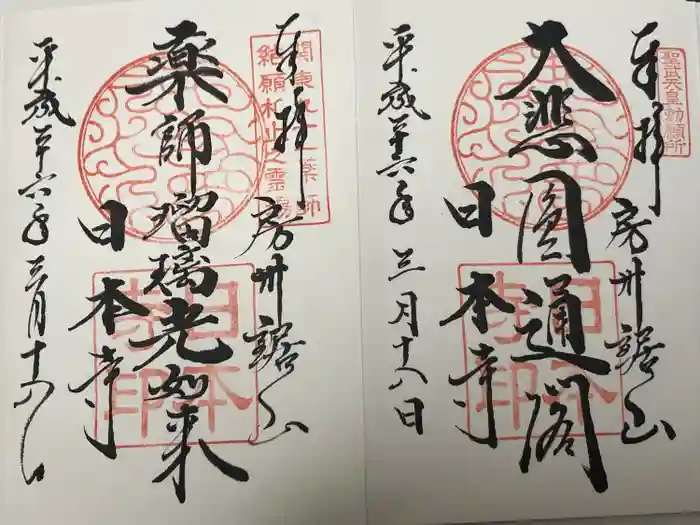 聖武天皇勅願所
奉拝 房州鋸山
大悲圓通閣
日本寺
日本寺印
平成廿六年三月十八日
関東九十一薬師
結願札止之霊場
奉拝 房州鋸山
薬師瑠璃光如来
日本寺
日本寺印
平成廿六年三月十八日